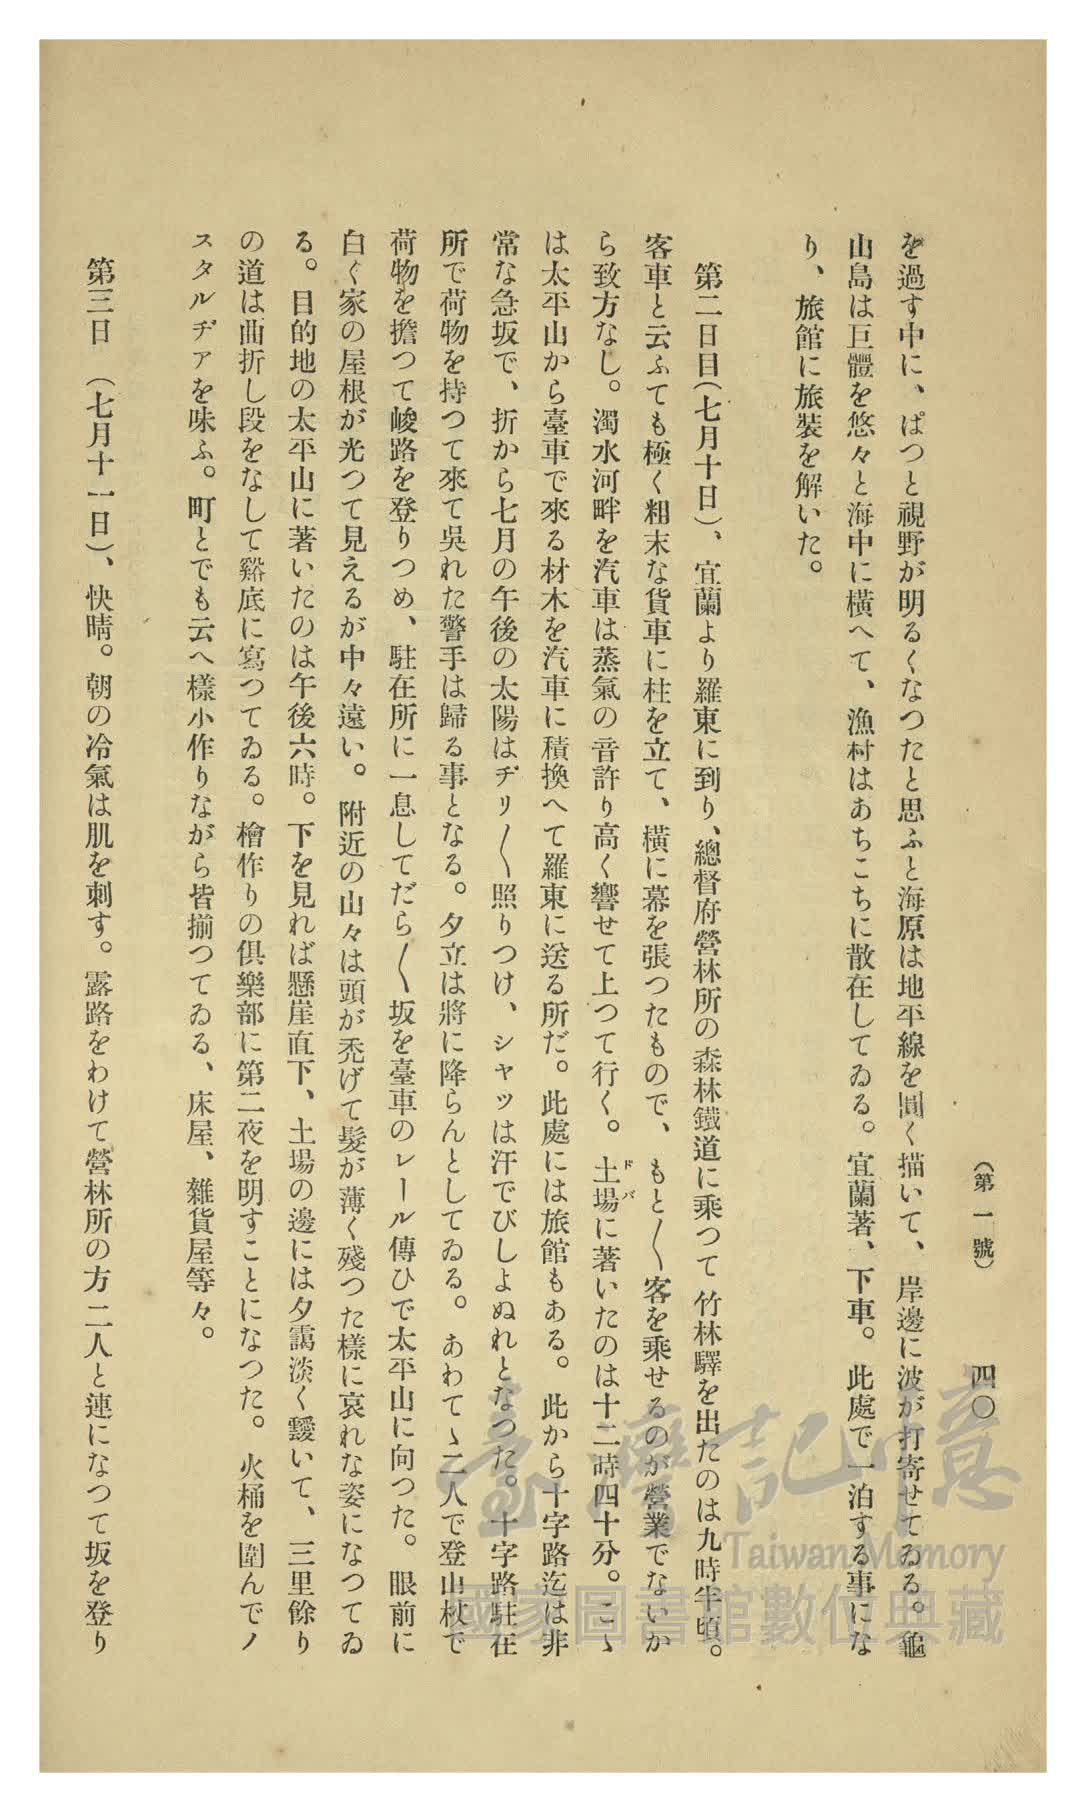 （第一號）　四〇
を過す中に、ぱつと視野が明るくなつたと思ふと海原は地平線を圓く描いて、岸邊に波が打寄せてゐる。龜
山島は巨體を悠々と海中に横へて、漁村はあちこちに散在してゐる。宜蘭著、下車。此處で一泊する事にな
り、旅館に旅裝を解いた。
第二日目（七月十日）、宜蘭より羅東に到り、總督府營林所の森林鐵道に乘つて竹林驛を出たのは九時半頃。
客車と云ふても極く粗末な貨車に柱を立て、横に幕を張つたもので、もと〱客を乘せるのが營業でないか
ら致方なし。濁水河畔を汽車は蒸氣の音許り高く響せて上つて行く。土場に著いたのは十二時四十分。こゝ
ドバ
は太平山から臺車で來る材木を汽車に積換へて羅東に送る所だ。此處には旅館もある。此から十字路迄は非
常な急坂で、折から七月の午後の太陽はヂリ〱照りつけ、シャッは汗でびしよぬれとなつた。十字路駐在
所で荷物を持つて來て吳れた警手は歸る事となる。夕立は將に降らんとしてゐる。あわてゝ二人で登山杖で
荷物を擔つて峻路を登りつめ、駐在所に一息してだら〱坂を臺車のレール傳ひで太平山に向つた。眼前に
白く家の屋根が光つて見えるが中々遠い。附近の山々は頭が禿げて髮が薄く殘つた樣に哀れな姿になつてゐ
る。目的地の太平山に著いたのは午後六時。下を見れば懸崖直下、土場の邊には夕靄淡く靉いて、三里餘り
の道は曲折し段をなして谿底に寫つてゐる。檜作りの倶樂部に第二夜を明すことになつた。火桶を圍んでノ
スタルヂアを味ふ。町とでも云へ樣小作りながら皆揃つてゐる、床屋、雜貨屋等々。
第三日　（七月十一日）、快晴。朝の冷氣は肌を刺す。露路をわけて營林所の方二人と連になつて坂を登り
臺灣記憶
Taiwan Memory
國家圖書館數位典藏